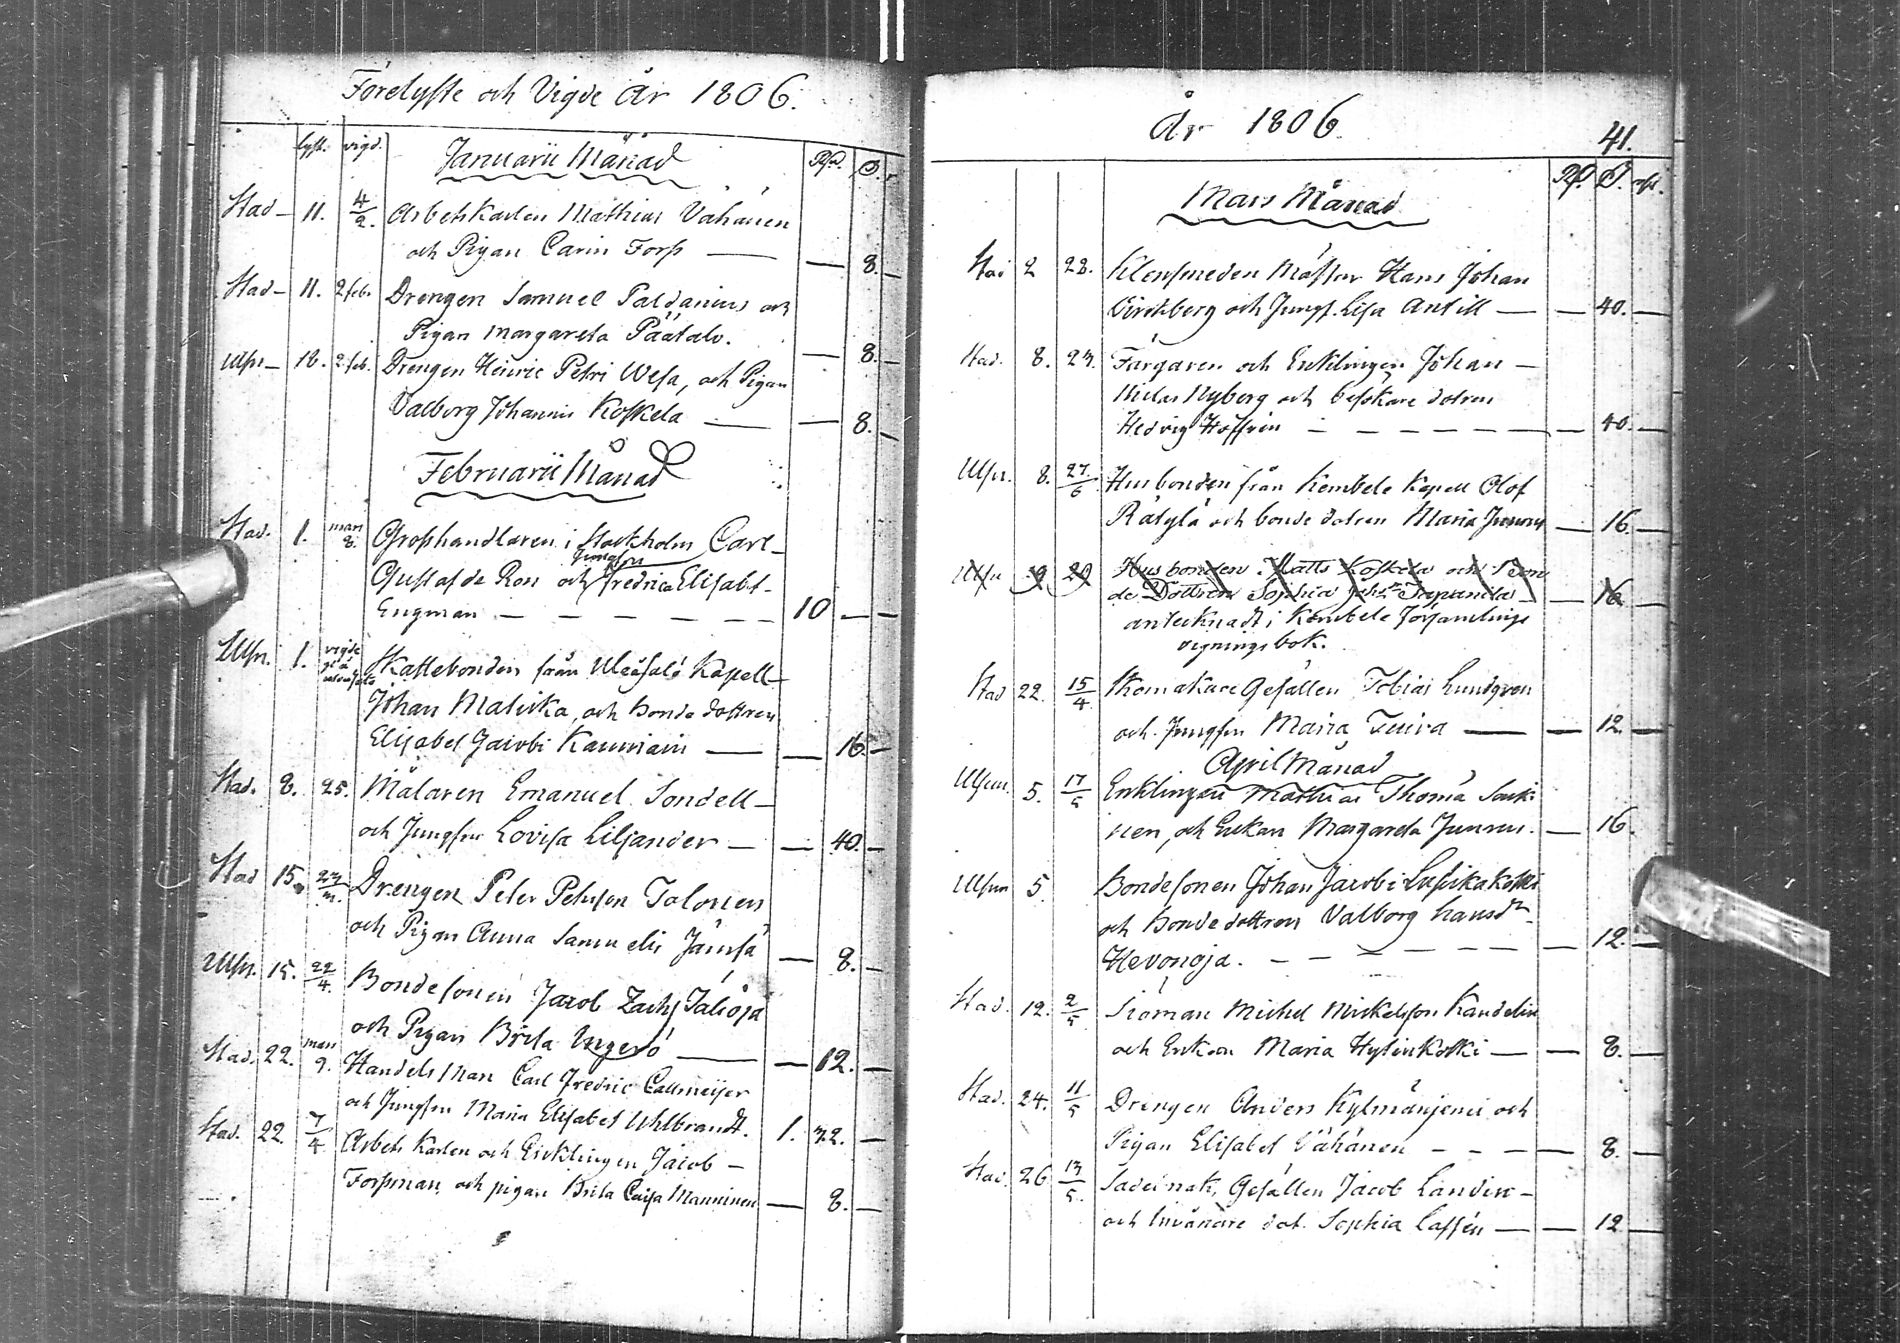 Förelyste och Vigde År 1806.
lyst. vigd. Januarii Månad
Stad – 11. 4/2. Arbetskarlen Mathias Vähänen
och Pigan Carin Forss — — 8. –
Stad – 11. 2 feb. Drengen Samuel Paldanius och
Pigan Margareta Päätalo. — 8. –
Ulsr – 18. 2 feb. Drengen Henric Petri Wesa, och Pigan
Valborg Johannis Koskela — — 8. –
Februarii Månad
Stad. 1. mars 8. Grosshandlaren i Stockholm Carl
Gustaf de Ron och Jungfru Fredrica Elisabt
Engman – – – – – – 10 – –
Ulsr. 1. vigde Skattebonden från Uleåsalo Kapell
Johan Matinka, och bonde dottren
Elisabet Jacobi — — 16. –
Stad. 8. 25. Målaren Emanuel Sondell –
och Jungfru Lovisa Liljander – — 40. –
Stad 15. 23/m. Drengen Peter Petersson Tolonen
och Pigan Anna Samuelis Jämsä — 8. –
Ulsr. 15. 22/4. Bondesonen Jacob Zachs Jaloja
och Pigan Brita Ungerö — — 12. –
Stad. 22. mars 9. Handelsman Carl Fredric Callmeijer
och Jungfru Maria Elisabet Uhlbrandt. 1. 32. –
Stad. 22 7/4 Arbets Karlen och Encklingen Jacob –
Forssman, och pigan Brita Caisa Manninen — 8. –
År 1806.
41.
Mars Månad
Stad 2 28. Klensmeden Mästar Hans Johan
Birckberg och Jungf. Lisa Antill — — 40. –
Stad. 8. 23. Färgaren och Enklingen Johan –
Niclas Nyberg och besökare dotren
Hedvig Hoffrén – – – – – – – 40. –
Ulsr. 8. 27./6. Husbonden från Kembele Kapell Olof
Rätylä och bonde dotren Maria Junnus — 16. –
Ulsr 9 29 Husbonden Matts Koskela och Bon
de Dottren Sophia Johsdr Tapanila — 16
antecknadt i Kembele Församlings
vigningsbok.
Stad 22. 15/4. Skomakare Gesällen Tobias Lundgren
och Jungfru Maria Tuira — — 12. –
April Månad
Ulsr. 5. 17/5 Enklingen Mathias Thomæ Sarki
nen, och Enkan Margareta Junnus. — 16.
Ulsr 5. Bondesonen Johan Jacobi
och Bonde dottren Valborg hansdr
Hevonoja. – – – – – – 12. –
Stad. 12. 2/5. Siöman Michel Mickelsson Kandelin
och Enkan Maria Hyrinkoski — — 8. –
Stad. 24. 11/5 Drengen Anders Kylmänjemi och
Pigan Elisabet Vähänen – – – — 8. –
Stad. 26. 13/5. Sadelmak. Gesällen Jacob Landen –
och Invånare dot. Sophia Lassén — — 12. –